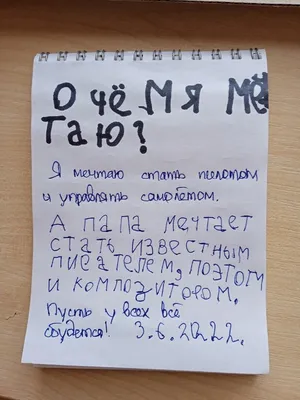 О чём я ме
таю?
Я мечтаю стать пилотом
и управлять самолётом.
А папа мечтает
стать известным
писателем, поэтом
и композитором.
Пусть у всех всё
сбудется! 3.6.2022.